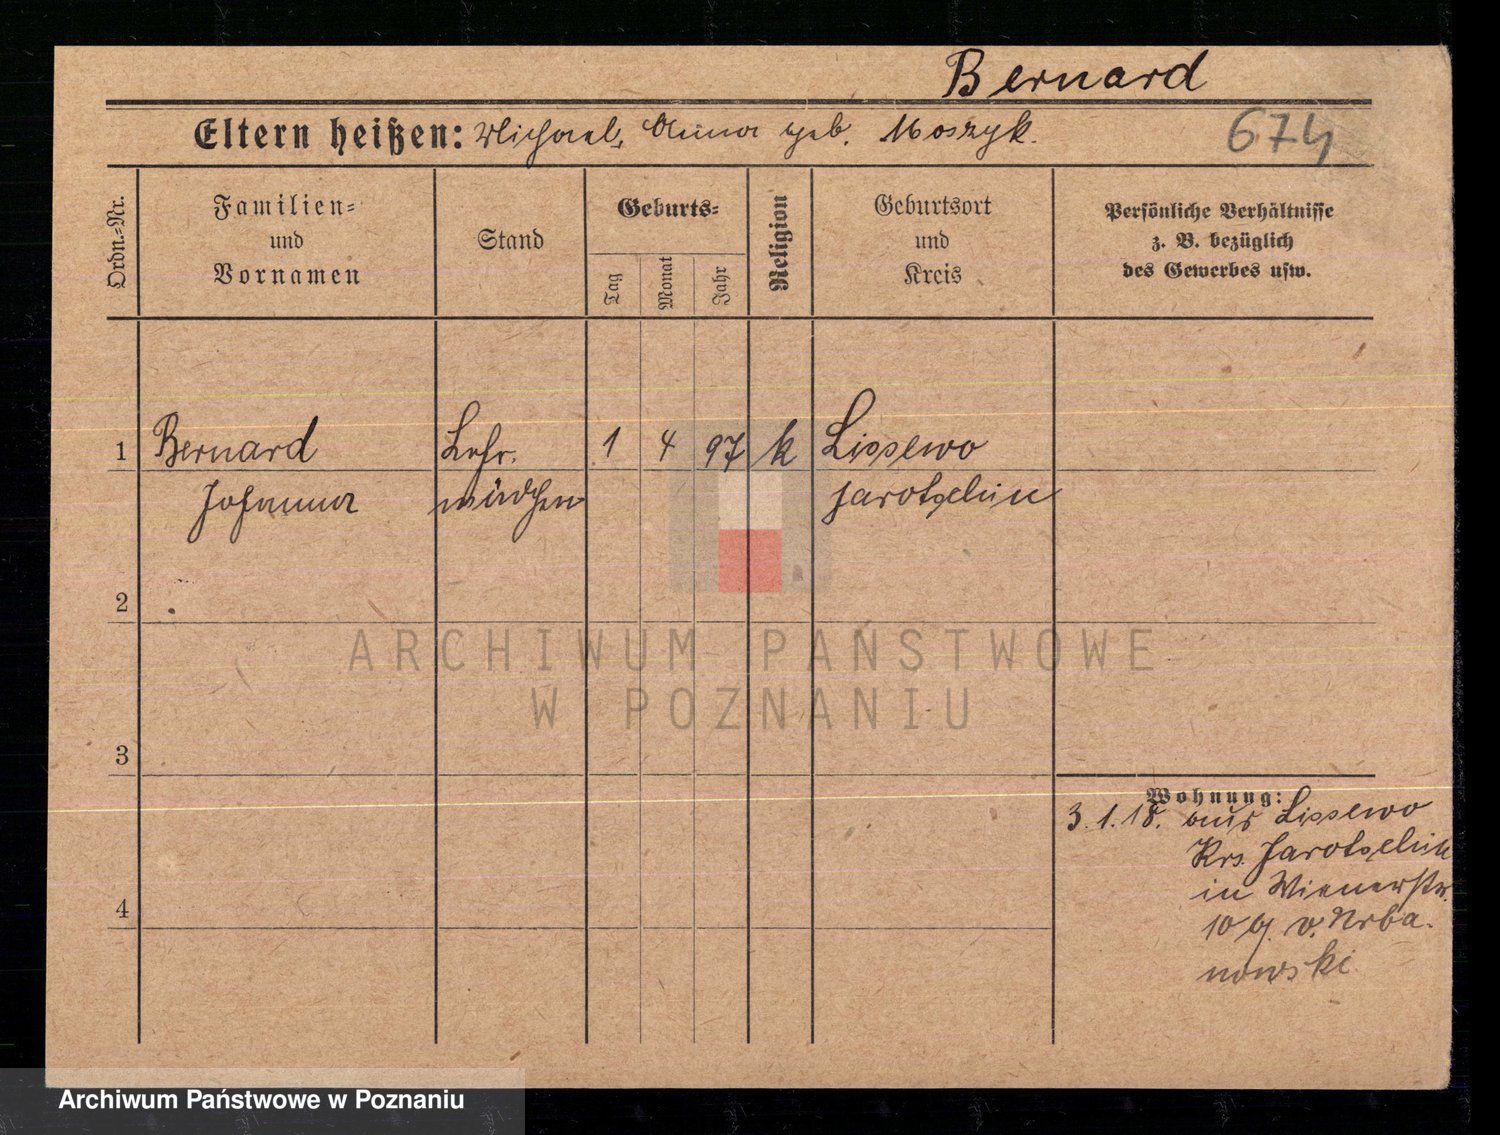 Bernard
Eltern heißen: Michael, Anna geb. Moszyk.
674
Ordn.-Nr.
Familien-
und
Vornamen
Stand
Geburts-
Tag
Monat
Jahr
Religion
Geburtsort
und
Kreis
Persönliche Verhältnisse
z. B. bezüglich
des Gewerbes usw.
1 Bernard Lehr- 1 4 97 k Lissewo
Johanna mädchen Jarotschin
2
3
4
Wohnung:
3.1.18. aus Lissewo
Krs. Jarotschin
in Wienerstr.
10 b. v. Urba-
nowski
ARCHIWUM PAŃSTWOWE
W POZNANIU
Archiwum Państwowe w Poznaniu